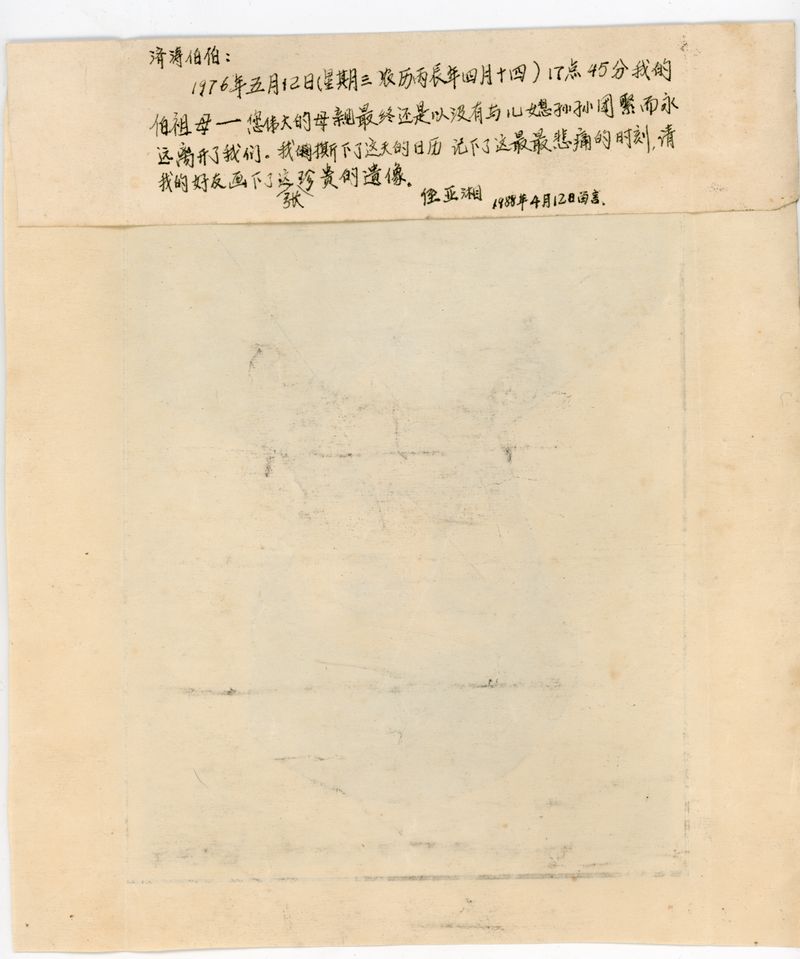 济涛伯伯：
1976年五月12日(星期三 农历丙辰年四月十四)17点45分我的
伯祖母一您伟大的母亲最终还是以没有与儿媳孙孙团聚而永
远离开了我们。我撕下了这天的日历 记下了这最最悲痛的时刻,请
我的好友画下了这张珍贵的遗像。
亚湘 1988年4月12日留言.